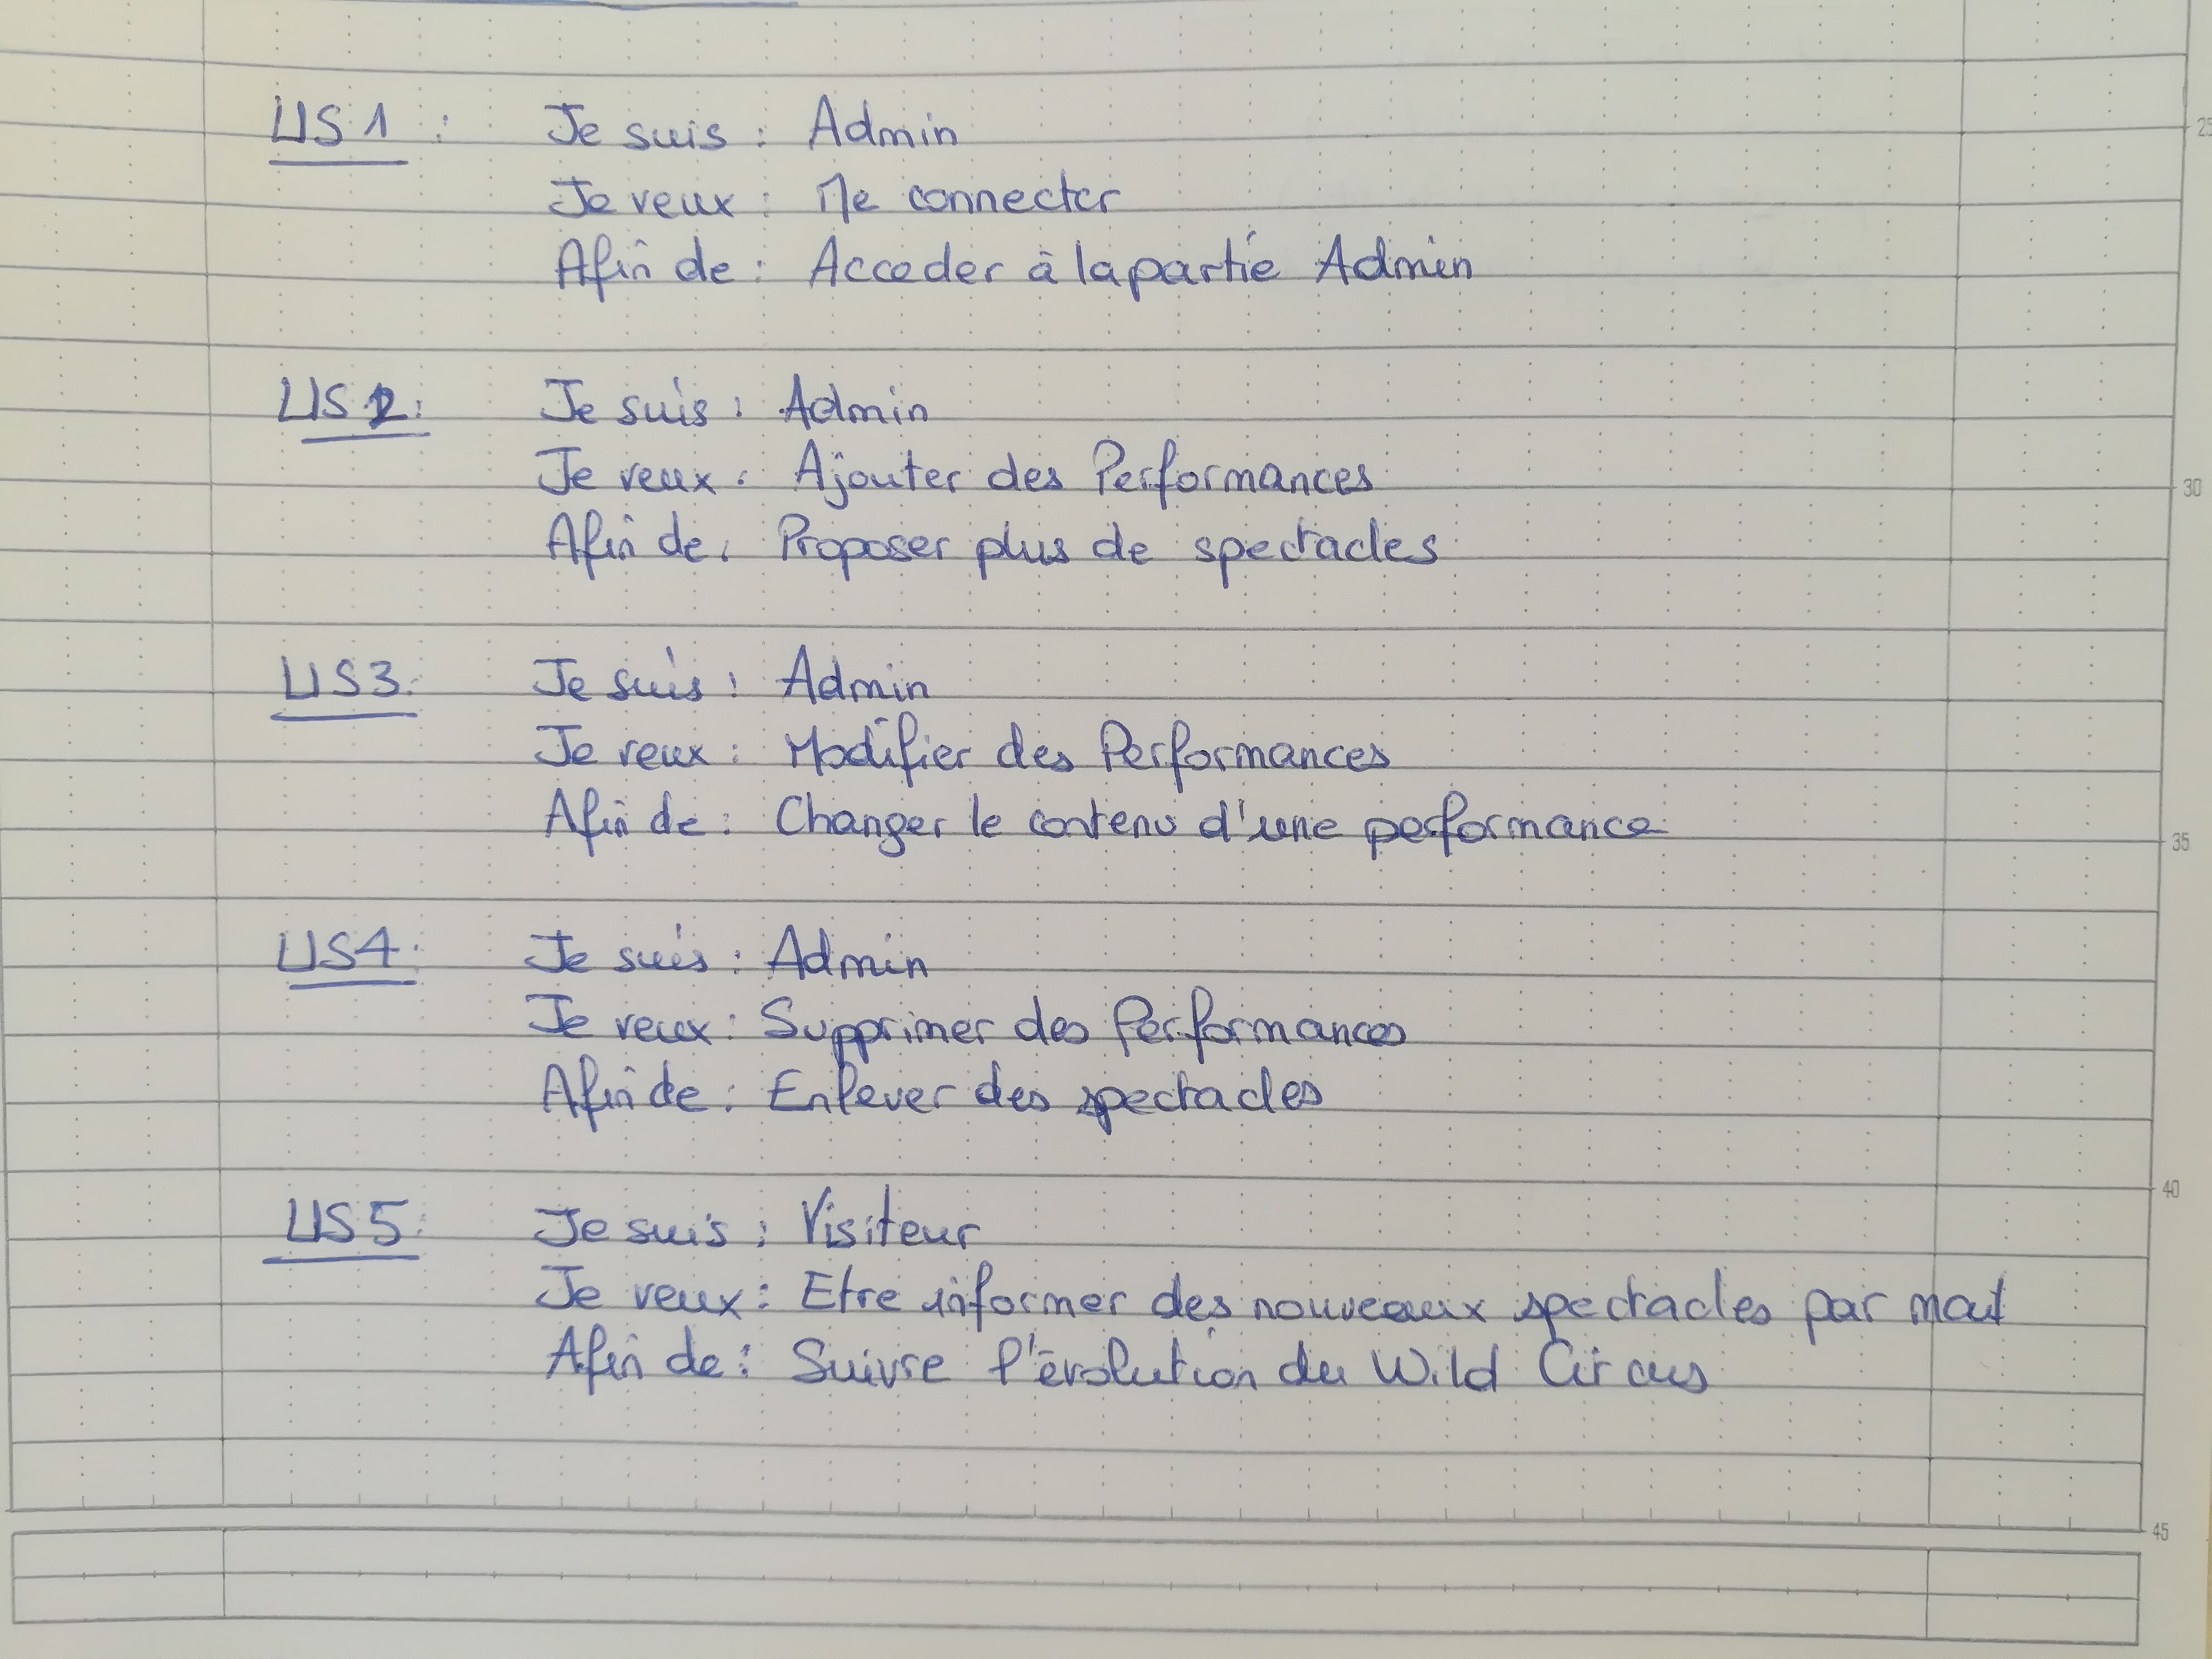 US1 : Je suis : Admin
Je veux : Me connecter
Afin de : Acceder à la partie Admin
US2 : Je suis : Admin
Je veux : Ajouter des Performances
Afin de : Proposer plus de spectacles
25
30
US3 : Je suis : Admin
Je veux : Modifier des Performances
Afin de : Changer le contenu d'une performance
35
US4 : Je suis : Admin
Je veux : Supprimer des Performances
Afin de : Enlever des spectacles
40
US5 : Je suis : Visiteur
Je veux : Etre informer des nouveaux spectacles par mail
Afin de : Suivre l'évolution du Wild Circus
45